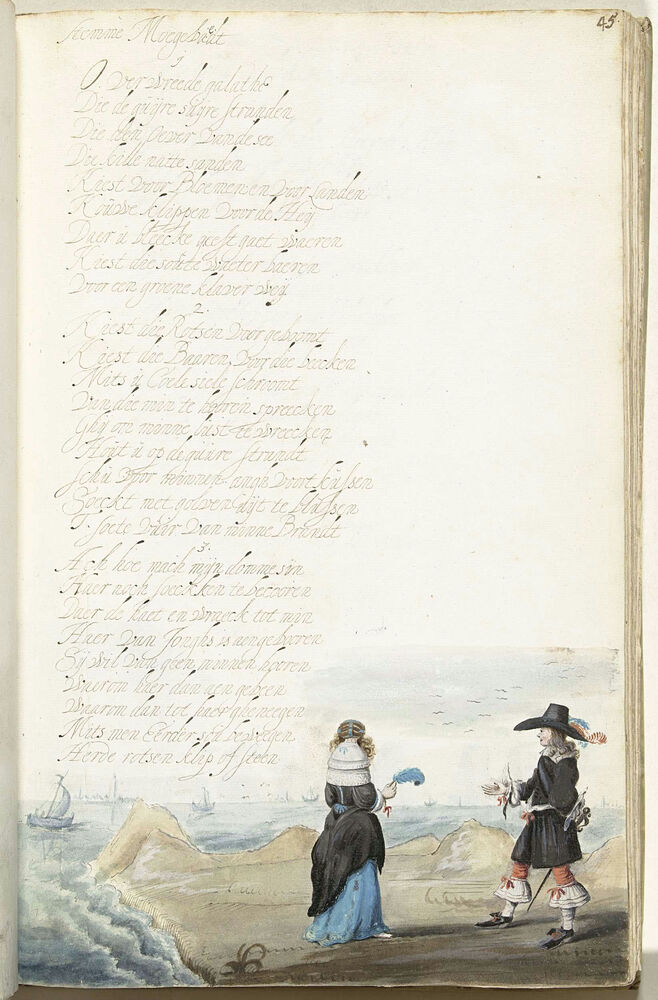 45
stemme Moegebuit
1
O. Over wreede galathe
Die de guijre suijre stranden
Die den Oever vande see
Die kille natte sanden
Kiest voor Bloemen en voor Landen
Kouwe klippen voor de Heij
Daer u bleecke geest gaet waeren
Kiest die soute water baeren
Voor een groene klaver weij
2
Kiest die Rotsen voor geboomt
Kiest die Baaren voor die beecken
Mits u siele schroomt
Van die min te hooren spreecken
Ghij om minne lust te wreecken
Hout u op de guire strandt
Schu voor minnen
Soeckt met golven t te blussen
T soete vuur van minne Brandt
3.
Ach hoe mach mijn domme sin
Haer noch soeckken te becooren
Daer de haet en wraeck tot min
Haer van Jonghs is aengebooren
Sij wil van geen minnen hooren
Waerom haer dan aen geboen
Waarom dan tot haer gheneegen
Mits men Eerder sou beweegen
Herde rotsen klip of steen